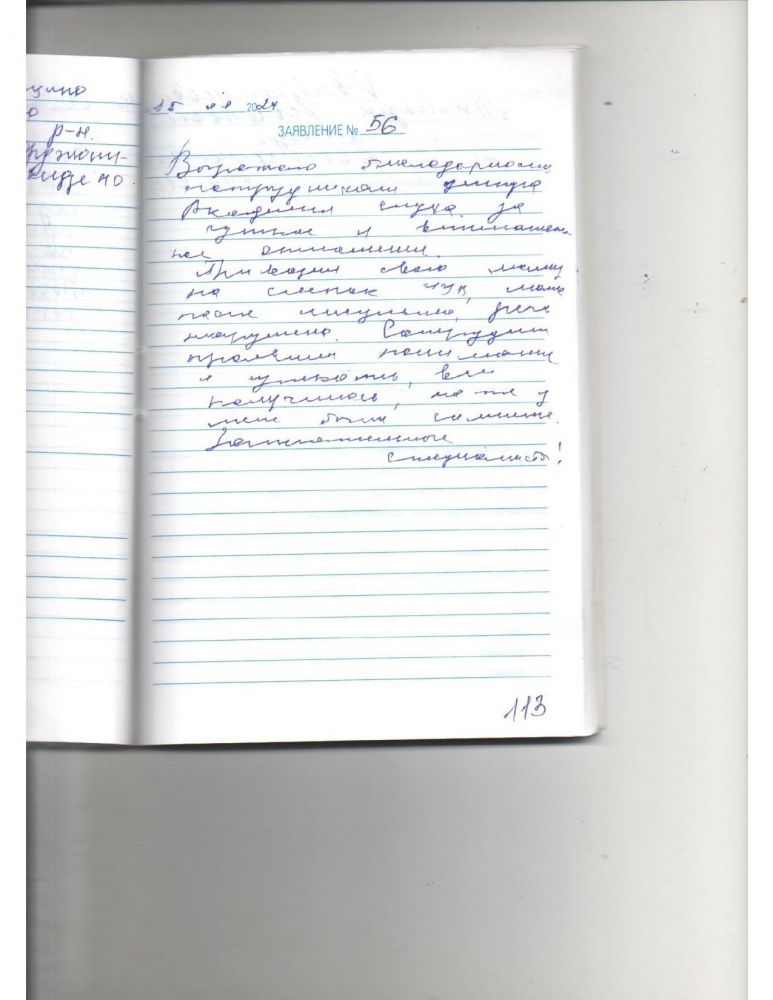 ицино
о
р-н.
рджони-
кидзе 40.
15 11 2024
ЗАЯВЛЕНИЕ № 56
Выражаю благодарность
сотрудникам центра
Академия слуха за
чуткое и внимательн
ое отношение.
Приводил свою маму
на слепок ИУВ, мама
после инсульта, речь
нарушена. Сотрудники
проявили понимание
и чуткость, все
получилось, хотя у
меня были сомнения.
Замечательные
специалисты!
113